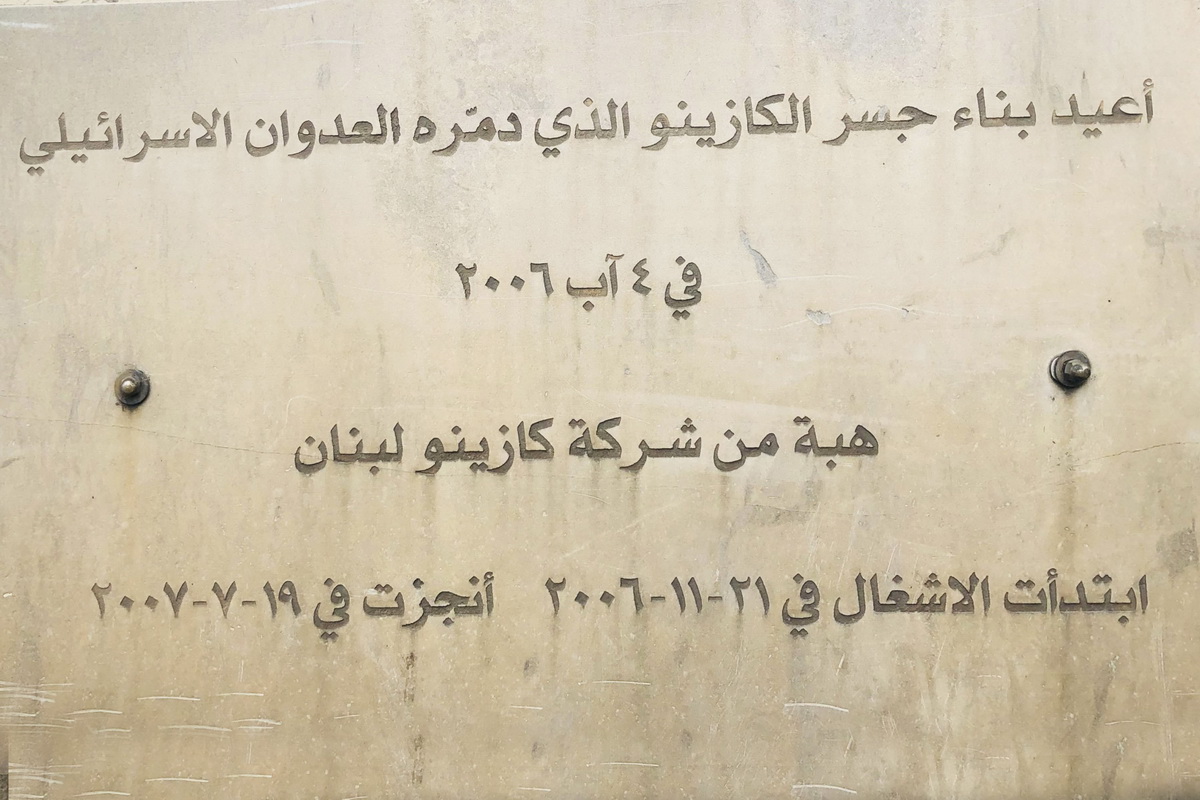 أعيد بناء جسر الكازينو الذي دمّره العدوان الاسرائيلي
في ٤ آب ٢٠٠٦
هبة من شركة كازينو لبنان
ابتدأت الاشغال في ٢١-١١-٢٠٠٦ أنجزت في ١٩-٧-٢٠٠٧